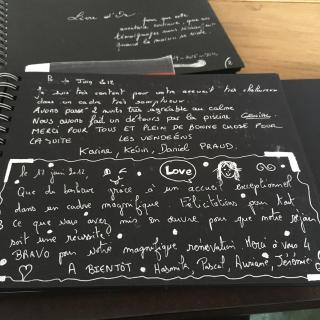 Livre d'Or
pour que cette
aventure continue, que vos
témoignages nous
quand la maison se vide.
Juin 2012
Je suis très content pour votre accueil très chaleureux
dans un cadre très somptueux.
Avons passé 2 nuits très agréable au calme
Nous avons fait un détours par la piscine Géniale.
MERCI POUR TOUS ET PLEIN DE BONNE CHOSE POUR
LA SUITE LES VENDÉENS
Karine, Kévin, Daniel PRAUD.
le 17 juin 2012,
Love
Que du bonheur grâce à un accueil exceptionnel
dans un cadre magnifique. Félicitations pour tout
ce que vous avez mis en œuvre pour que notre séjour
soit une réussite!
BRAVO pour votre magnifique rénovation. Merci à vous 4
A BIENTÔT Hasmik, Pascal, Auriane, Jérémie.